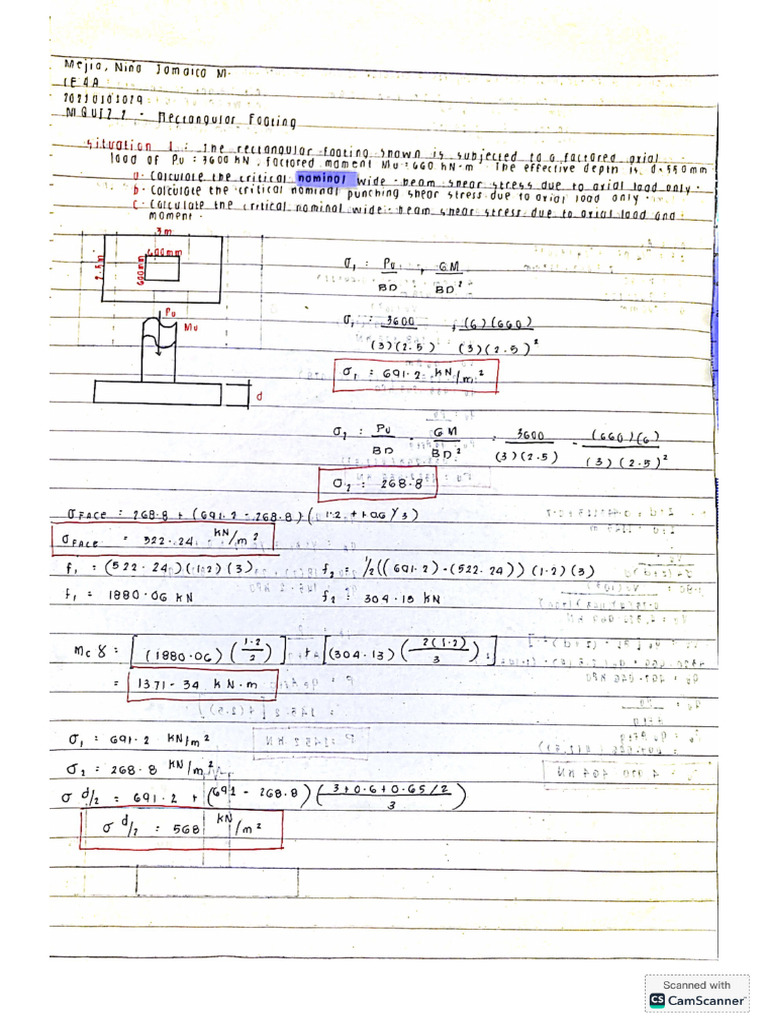 Mejia, Nina Jamaica M.
CE 4A
MQUIZ 2 - Rectangular Footing
Situation 1 : The rectangular footing shown is subjected to a factored axial
load of Pu = 3600 kN , factored moment Mu = 660 kN·m · The effective depth is 0.550mm
a· Calculate the critical nominal wide-beam shear stress due to axial load only·
b· Calculate the critical nominal punching shear stress due to axial load only·
c· Calculate the critical nominal wide-beam shear stress due to axial load and
moment·
3m
400mm
2.5m
600mm
Pu
Mu
d
σ₁ = Pu/BD + 6M/BD²
σ₁ = 3600/(3)(2.5) + (6)(660)/(3)(2.5)²
σ₁ = 691.2 kN/m²
σ₂ = Pu/BD - 6M/BD² = 3600/(3)(2.5) - (660)(6)/(3)(2.5)²
σ₂ = 268.8
σFACE = 268.8 + (691.2 - 268.8)
σFACE = 522.24 kN/m²
f₁ = (522.24)(1.2)(3) f₂ = 1/2((691.2)-(522.24))(1.2)(3)
f₁ = 1880.06 kN f₂ = 304.13 kN
= [(1880.06)(1.2/2)] + [(304.13)(2(1.2)/3)]
= 1371.34 kN·m
σ₁ = 691.2 kN/m²
σ₂ = 268.8 kN/m²
σ d/2 = 691.2 + (691 - 268.8)(3+0.6+0.65/2 / 3)
σ d/2 = 568 kN/m²
Scanned with
CS CamScanner